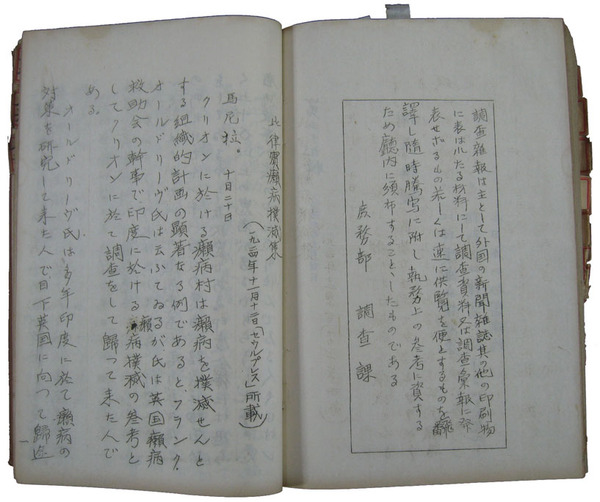 調査雑報は主として外国の新聞雑誌其の他の印刷物
に表はれたる材料にて調査資料又は調査彙報に登
表せざるもの若しくは速に供覧を便とするものを飜
譯し随時謄写に附し執務上の参考に資する
ため廳内に頒布することゝしたものである
庶務部 調査課
比律賓癩病撲滅策
(一九二四年十一月十二日「セウルプレス」所載)
馬尼拉。 十月二十日
クリオンに於ける癩病村は癩病を撲滅せんと
する組織的計画の顕著なる例であるとフランク、
オールドリーヴ氏は云ふてゐるが氏は英国癩病
救助会の幹事で印度に於ける癩病撲滅の参考と
してクリオンに於て調査をして帰つて来た人で
ある。
オールドリーヴ氏は多年印度に於て癩病の
対策を研究して来た人で目下英国に向つて帰途
一